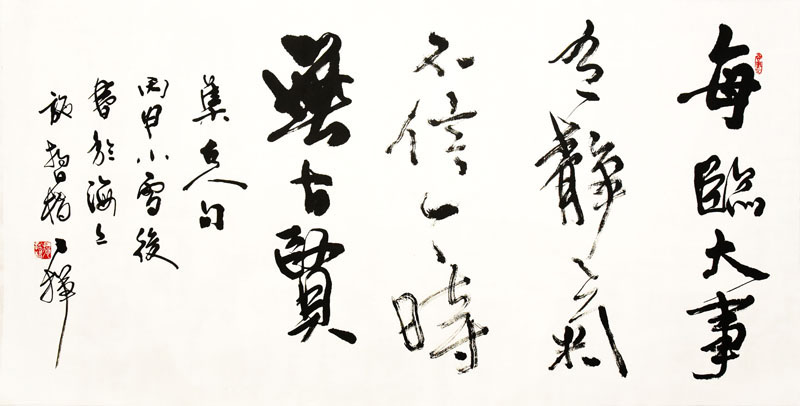 每臨大事
有靜氣
不信今時
無古賢
集古人句
丙申小雪後
書於海上